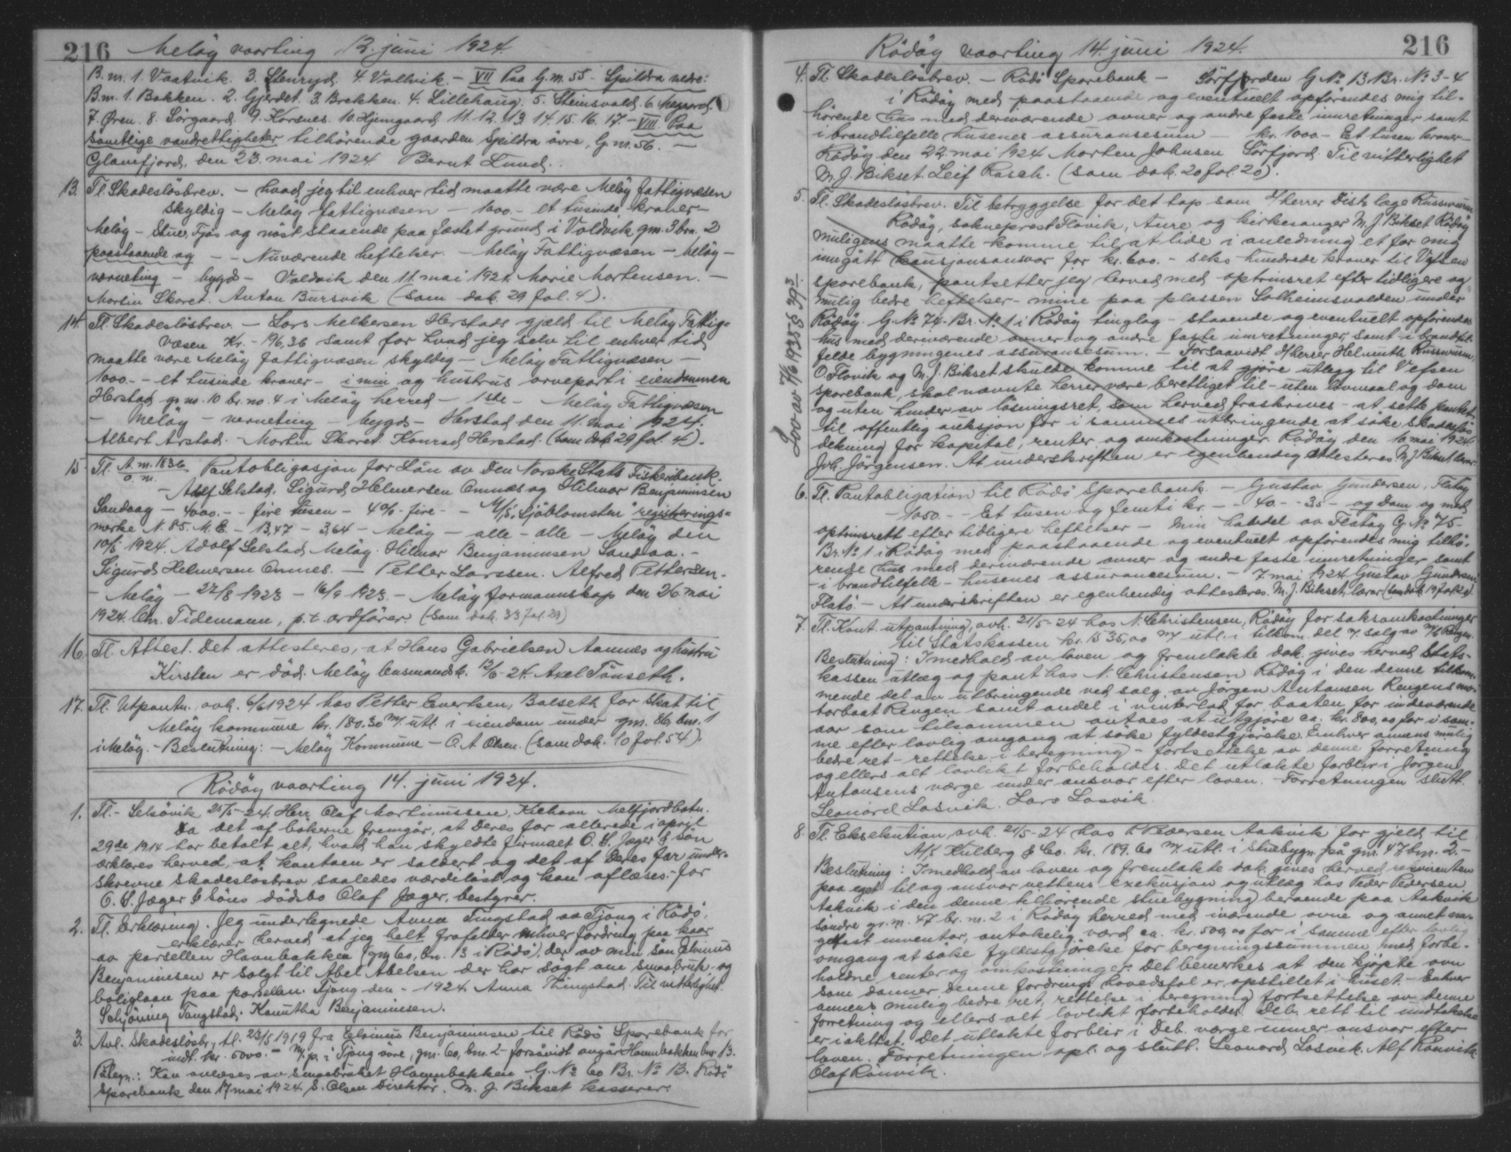 216 Meløy vaarting 13. juni 1924.
B.m. 1. Vaatvik. 3. Stenryd. 4. Vallvik - VII Paa G.m. 55 - Spildra nedre:
B.m. 1. Bakken. 2. Gjerdet. 3. Brekken. 4. Lillehaug. 5. Steinsvold. 6.
7. Øren. 8. Sørgaard. 9. Korsnes. 10. 11. 12. 13. 14 15. 16. 17 - VIII. Paa
samtlige vandrettigheter tilhørende gaarden Spildra øvre. G.m. 56. -
Glomfjord, den 23. mai 1924 Bernt Lund.
13. Tl. Skadesløsbrev. - hvad jeg til enhver tid maatte være Meløy fattigvæsen
skyldig - Meløy fattigvæsen - 1000 - et tusinde kroner -
Meløy - Stue, fjøs og nøst staaende paa festet grund i Valdvik gm. bm. 2
paastaaende og - Nuværende heftelser. - Meløy Fattigvæsen - Meløy -
verneting - bygd - Valdvik den 11. mai 1924 Marie Mortensen. -
Martin Skoret. Anton Bursvik (som dok. 29 fol. 4).
14. Tl. Skadesløsbrev - Lars Melkersen Herstads gjæld til Meløy Fattig-
væsen Kr. 196,36 samt for hvad jeg selv til enhver tid
maatte være Meløy fattigvæsen skyldig - Meløy Fattigvæsen -
1000 - et tusinde kroner - i min og hustrus arvepart i eiendommen
Herstad gr. no. 10 br. no. 4 i Meløy herred - 1ste - Meløy Fattigvæsen
- Meløy - verneting - bygd - Herstad den 11. mai 1924.
Albert Arstad. Martin Skoret. Konrad Herstad. (som dok 29 fol. 4).
15 Tl. A.m. 1836 Pantobligasjon for Lån av Den Norske Stats Fiskeribank.
- Adolf Selstad. Sigurd Helmersen Onnæs og Hilmar Benjaminsen
Sandaag - 4000 - fire tusen - 4% - fire - M/S. Sjøblomsten registrerings-
merke N. 85. M.E. - 13,47 - 3,64 - Meløy - alle - alle - Meløy den
10/5 1924. Adolf Selstad, Meløy. Hilmar Benjaminsen Sandaa. -
Sigurd Helmersen Onnes. - Petter Larssen. Alfred Pettersen. -
- Meløy - 22/8 1923 - 16/9 1923. - Meløy formannskap den 26 mai
1924. Chr. Tidemann, p.t. ordfører (Som dok. 33 fol. 29)
16. Tl. Attest. Det attesteres, at Hans Gabrielsen Aamnes og hustru
Kirsten er død. Meløy lensmandsk. 12/6 - 24. Axel Tønseth.
17. Tl. Utpantn. avh. 6/6 1924 hos Petter Evertsen, Balseth for skat til
Meløy kommune kr. 180.30 m/ utl. i eiendom under gm. 86, bm. 1
i Meløy. - Beslutning: - Meløy Kommune - O. A. Olsen. (som dok. 10 fol. 54).
Rødøy vaarting 14. juni 1924.
1. Tl. - Selsøvik 25/5 - 24. Herr Olaf Martinussen, Kilhavn Melfjordbotn.
Da det af bøkerne fremgår, at Deres far allerede i april
29de 1914 har betalt alt, hvad han skyldte firmaet O. S. Jæger & Søn
erklæres herved, at kontoen er saldert og det af Deres far under-
skrevne skadesløsbrev saaledes værdiløst og kan aflæses. For
O. S. Jæger & Søns dødsbo Olaf Jæger, bestyrer.
2. Tl. Erklæring. Jeg underlegnede Anna Tingstad av Tjong i Rødø,
erklærer herved at jeg helt frafalder enhver fordring paa kaar
av parsellen Havnbakken (gm. 60, bn. 13 i Rødø), der av min søn Elvinus
Benjaminsen er solgt til Abel Abelsen der har søgt om smaabruk- og
boliglaan paa parsellen. Tjong den - 1924 Anna Thingstad. Til vitterlighet:
Schjønning Tangstad. Kanutha Benjaminsen.
3. Avl. Skadesløsbr., tl. 23/5 1919 fra Elvinus Benjaminsen til Rødø Sparebank for
indt. kr. 5000. - m/ p. i Tjong øvre, gm. 60, bm. 2 - forsåvidt angår Havnbakken bnr. 13.
Påtegn.: Kan avløses av smaabruket Havnbakken G. No 60 Br. No 13. Rødø
Sparebank den 17 mai 1924. S. Olsen Direktør. M. J. Bikset kasserer.
Rødøy vaarting 14. juni 1924. 216
4. Tl. Skadesløsbrev. - Rødø Sparebank - Sørfjorden G. No 13 Br. No 3-4
i Rødøy med paastaaende og eventuelt opførendes mig til-
hørende hus med derværende ovner og andre faste innretninger samt
i brandtilfelle husenes assuransesum - kr. 1000 - Et tusen kroner -
Rødøy den 22 mai 1924 Morten Johnsen Sørfjord. Til vitterlighet
M. J. Bikset Leif Rasch. (som dok. 20 fol 20).
5. Tl. Skadesløsbrev. Til betryggelse for det tap som herrer Distr. læge Russwurm
Rødøy, sokneprest Flovik, Aure og kirkesanger M. J. Bikset Rødøy
muligens maatte komme til at lide i anledning et for mig
inngått kausjonsansvar for kr. 600 - seks hundrede kroner til Vefsen
sparebank, pantsetter jeg herved med optrinsret efter tidligere og
mulig bedre heftelser - mine paa plassen Solheimsvolden under
Rødøy G. No 74 Br. No 1 i Rødøy tinglag - staaende og eventuelt opførendes
hus med derværende ovner og andre faste innretninger, samt i brandtil-
felde bygningenes assuransesum. - Forsaavidt herrer Helmuth Russwurm,
O Flovik og M. J. Bikset skulde komme til at gjøre utlegg til Vefsen
sparebank, skal nævnte herrer være berettiget til - uten lovmaal og dom
og uten hinder av løsningsret, som herved fraskrives - at sette pantet
til offentlig auksjon for i sammes utbringende at søke skadesløs
dekning for kapital, renter og omkostninger. Rødøy den 16 mai 1924
Joh. Jørgensen. At underskriften er egenhendig attesteres M J Bikset lærer.
Lov av 7/6 1935 § 39 3
6. Tl. Pantobligation til Rødø Sparebank - Gustav Gundersen, Flatøy
- 1050 - Et tusen og femti kr. - - 40 - - 35 - og Dom og med
optrinsrett efter tidligere heftelser - Min halvdel av Flatøy G. No 75
Br. No 1 i Rødøy med paastaaende og eventuelt opførendes mig tilhø-
rende hus med derværende ovner og andre faste innretninger samt
- i brandtilfelle - husenes assuransesum. - 7 mai 1924 Gustav Gundersen
Flatø - At underskriften er egenhendig attesteres. M. J. Bikset, lærer
7. Tl. Kont. utpantning avh. 21/5 - 24 hos N. Christensen, Rødøy for saksomkostninger
til Statskassen kr. 1536,00 m/ utl. i tilkom. del v. salg av M/B Rengen.
Beslutning: I medhold av loven og fremlakte dok. gives herved Stats-
kassen utlæg og pant hos N. Christensen Rødøy i den denne tilkom-
mende del av utbringende ved salg av Jørgen Antonsen Rengens mo-
torbaat Rengen samt andel i vinterlod for baaten for indeværende
aar som tilsammen antaes at utgjøre ca. kr. 800,00 for i sam-
me efter lovlig omgang at søke fyldestgjørelse. Enhver annens mulig
bedre ret - rettelse i beregning - fortsettelse av denne forretning
og ellers alt lovlikt forbeholdes. Det utlakte forblir i Jørgen
Antonsens værge under ansvar efter loven. - Forretningen slutt.
Leonard Losvik. Lars Losvik.
8. Tl. Eksekution avh. 21/5 - 24 hos P. Pedersen Aakvik for gjeld til
A/S Kulberg & Co. kr. 189.60 m/ utl. i stuebygn. på gm. 47 bm. 2. -
Beslutning: I medhold av loven og fremlakte dok. gives herved rekvirenten
paa eget til og ansvar rettens exekusjon og utlæg hos Peder Pedersen
Aakvik i den denne tilhørende stuebygning beroende paa Aakvik
søndre gr. m. 47 br. m. 2 i Rødøy herred med ivarende ovne og annet
fast inventar, antakelig værd ca. kr. 500,00 for i samme efter lovlig
omgang at søke fyldestgjørelse for beregningssummen med forbe-
holdne renter og omkostninger. Det bemerkes at den kjøpte ovn
som danner denne fordrings hovedsfol er opstillet i huset - Enhver
annens mulig bedre ret, rettelse i beregning fortsettelse av denne
forretning og ellers alt lovlikt forbeholdes. Deb. rett til undtakelse
er iakttat. Det utlakte forblir i Deb. værge under ansvar efter
loven. Forretningen opl. og slutt. Leonard Losvik. Alf Rønvik
Olaf Rønvik.